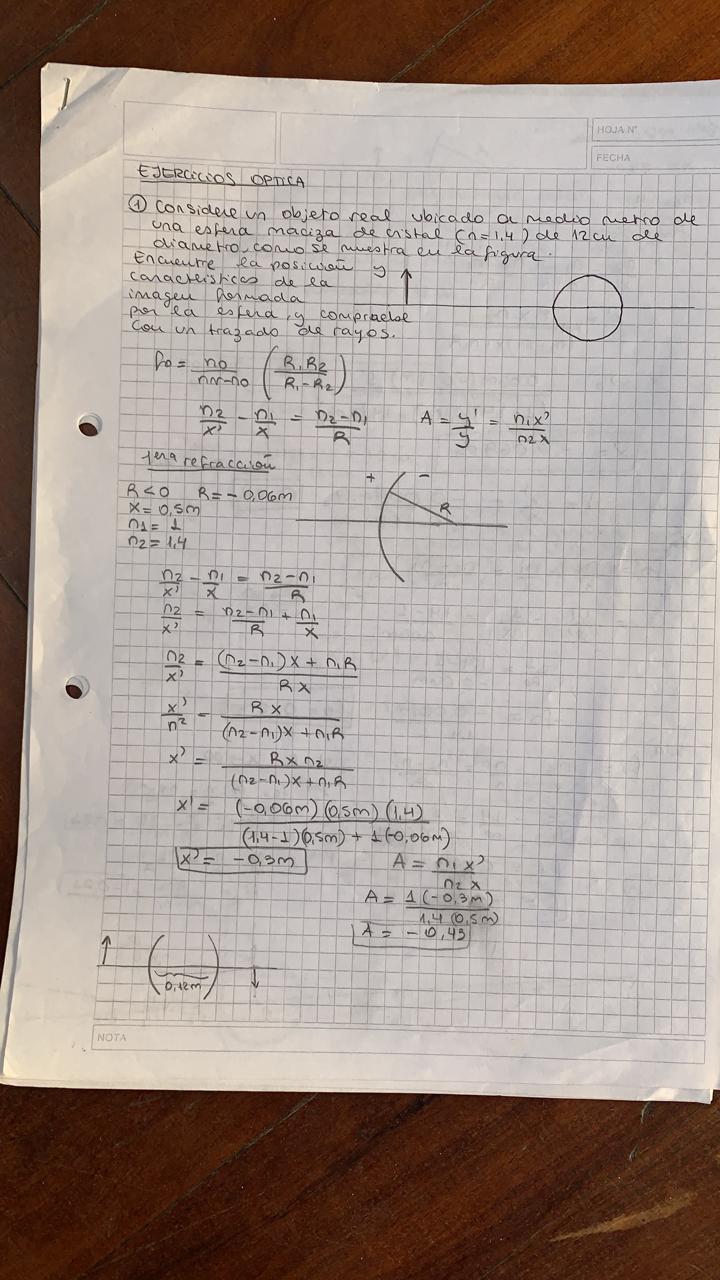 HOJA Nº
FECHA
EJERCICIOS OPTICA
① Considere un objeto real ubicado a medio metro de
una esfera maciza de cristal (n=1,4) de 12cm de
diametro, como se muestra en la figura.
Encuentre la posición y
características de la
imagen formada
por la esfera, y compruebe
con un trazado de rayos.
fo = no/(nv-no) (R1R2/(R1-R2))
n2/x' - n1/x = (n2-n1)/R
A = y'/y = n1x'/n2x
1era refracción
+ -
R
R<0 R=-0,06m
x=0,5m
n1=1
n2=1,4
n2/x' - n1/x = (n2-n1)/R
n2/x' = (n2-n1)/R + n1/x
n2/x' = ((n2-n1)x + n1R)/(Rx)
x'/n2 = Rx/((n2-n1)x + n1R)
x' = Rxn2/((n2-n1)x + n1R)
x' = (-0,06m)(0,5m)(1,4)/((1,4-1)(0,5m) + 1(-0,06m))
x' = -0,3m
A = n1x'/n2x
A = 1(-0,3m)/1,4(0,5m)
A = -0,43
0,12m
NOTA